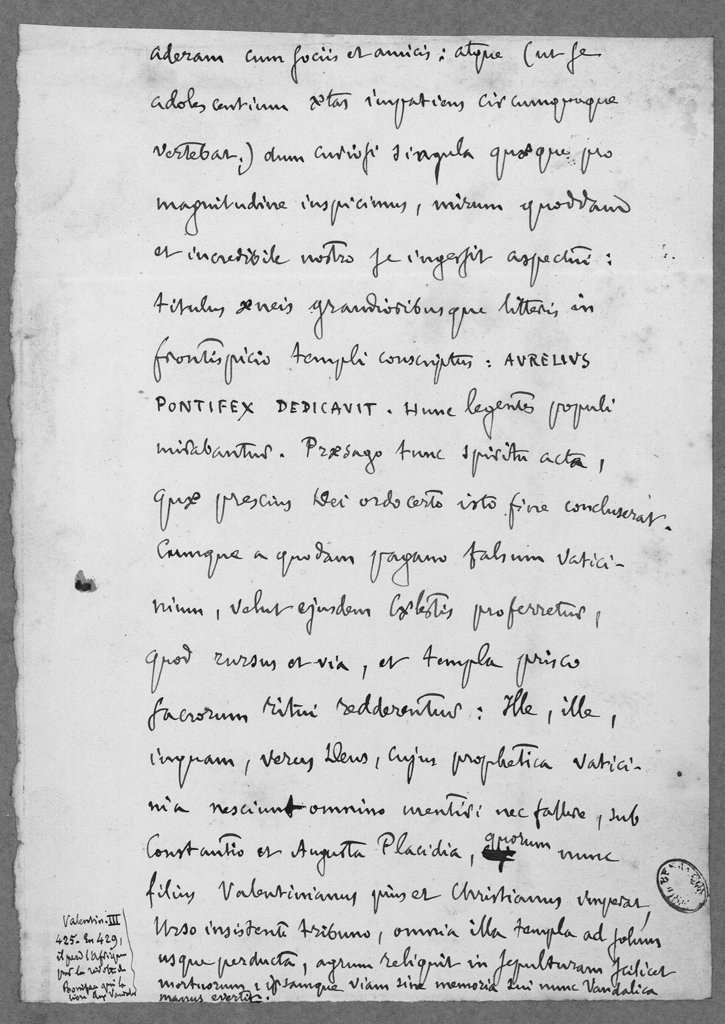 aderam cum sociis et amicis: atque (ut se
adolescentium ætas impatiens circumquaque
vertebat,) dum curiosi singula quæque pro
magnitudine inspicimus, mirum quoddam
et incredibile nostro se ingessit aspectui:
titulus æneis grandioribusque litteris in
frontispicio templi conscriptus: AVRELIVS
PONTIFEX DEDICAVIT. Hunc legentes populi
mirabantur. Præsago tunc spiritu acta,
quæ præscius Dei ordo certo isto fine concluserat.
Cumque a quodam pagano falsum vatici-
nium, velut ejusdem Cælestis proferretur,
quod rursus et via, et templa prisco
sacrorum ritui redderentur: Ille, ille,
inquam, verus Deus, cujus prophetica vatici-
nia nesciunt omnino mentiri nec fallere, sub
Constantio et Augusta Placidia, quorum nunc
filius Valentinianus pius et Christianus imperat,
Urso insistente tribuno, omnia illa templa ad solum
usque perducta, agrum reliquit in sepulturam scilicet
mortuorum; ipsamque viam sine memoria sui nunc Vandalica
manus evertit.
Valentin. III
425. En 429,
il perd l'Afrique
par la révolte de
Boniface qui la
livre aux Vandales